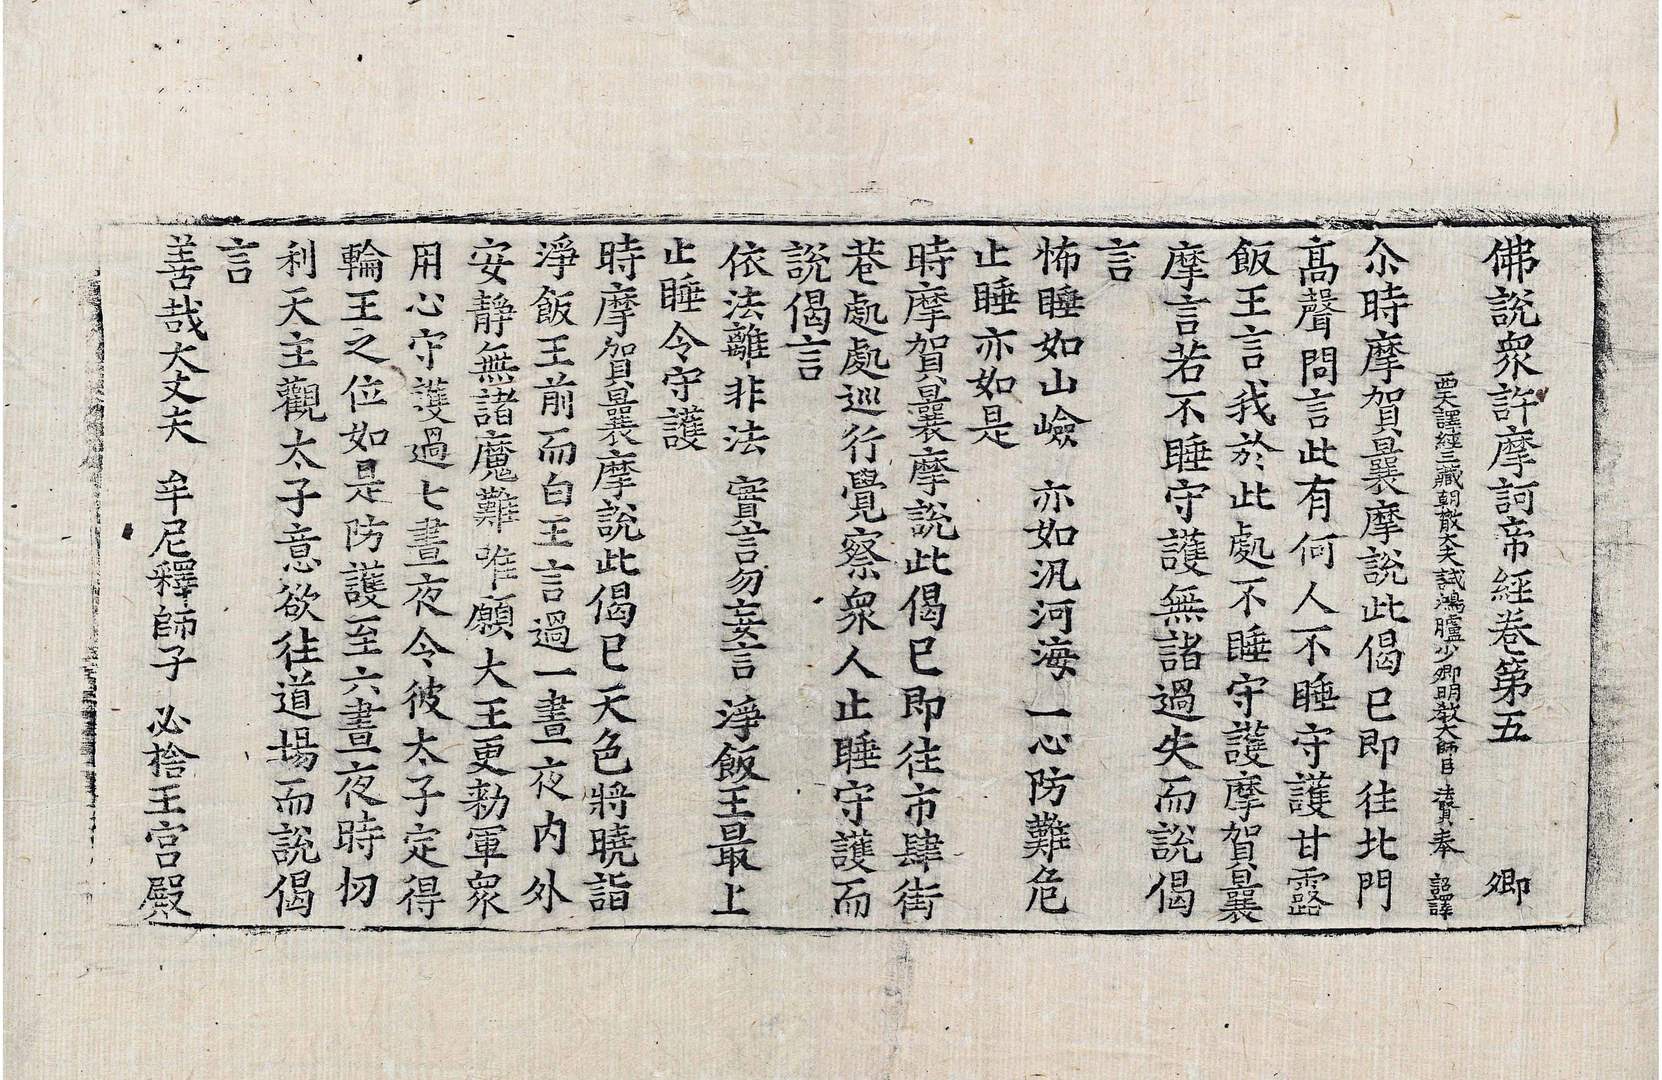 佛說衆許摩訶帝經卷第五 卿
西天譯經三藏朝散大夫試鴻臚少卿明敎大師臣法賢奉 詔譯
尒時摩賀曩摩說此偈已即往北門
高聲問言此有何人不睡守護甘露
飯王言我於此處不睡守護摩賀曩
摩言若不睡守護無諸過失而說偈
言
怖睡如山嶮 亦如汎河海 一心防難危
止睡亦如是
時摩賀曩摩說此偈已即往市肆街
巷處處巡行覺察衆人止睡守護而
說偈言
依法離非法 實言勿妄言 淨飯王最上
止睡令守護
時摩賀曩摩說此偈已天色將曉詣
淨飯王前而白王言過一晝夜內外
安靜無諸魔難唯願大王更勑軍衆
用心守護過七晝夜令彼太子定得
輪王之位如是防護至六晝夜時忉
利天主觀太子意欲往道場而說偈
言
善哉大丈夫 牟尼釋師子 必捨王宮殿